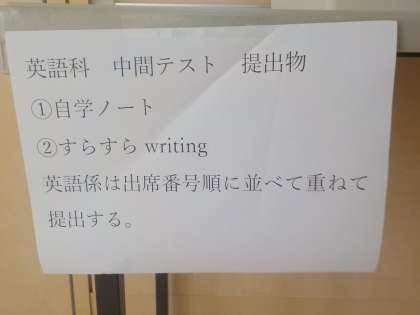 英語科　中間テスト　提出物
①自学ノート
②すらすら writing
英語係は出席番号順に並べて重ねて
提出する。